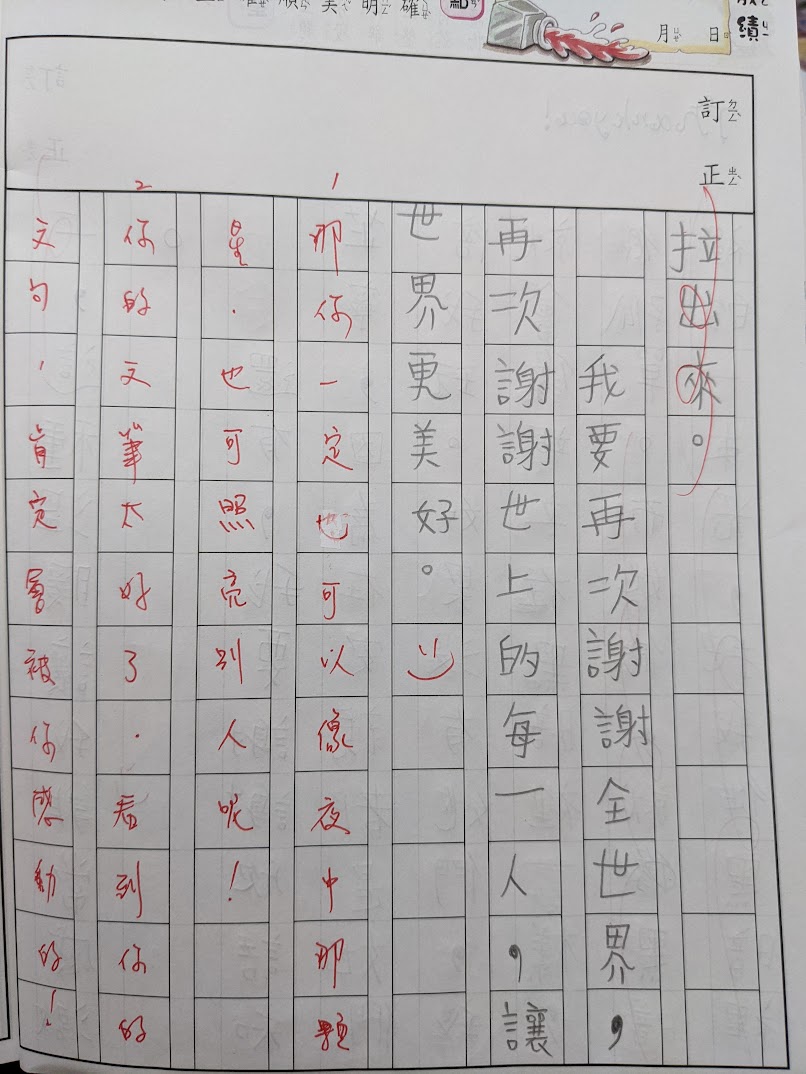 績
月 日
順 美 明 確
訂正
拉出來。
我要再次謝謝全世界，
再次謝謝世上的每一人，讓
世界更美好。
1 那你一定也可以像夜中那顆
星.也可照亮別人呢！
2 你的文筆太好了.看到你的
文句,肯定會被你感動的！